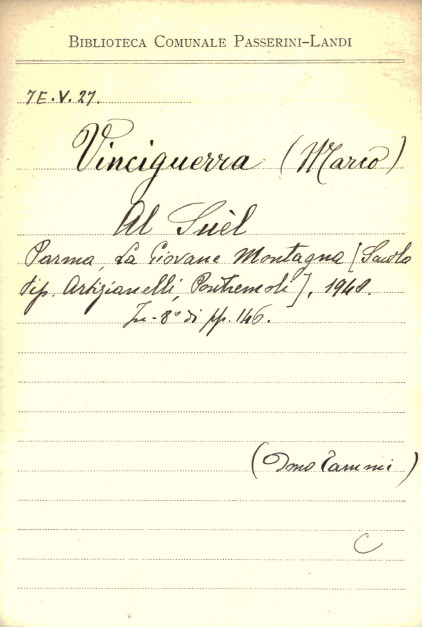 BIBLIOTECA COMUNALE PASSERINI-LANDI
7E.V.27.
Vinciguerra (Marco)
Al Suèl
Parma, La Giovane Montagna [Scuola
tip. Artigianelli, Pontremoli], 1948.
In-8° di pp. 146.
(Dono Tammi)
C